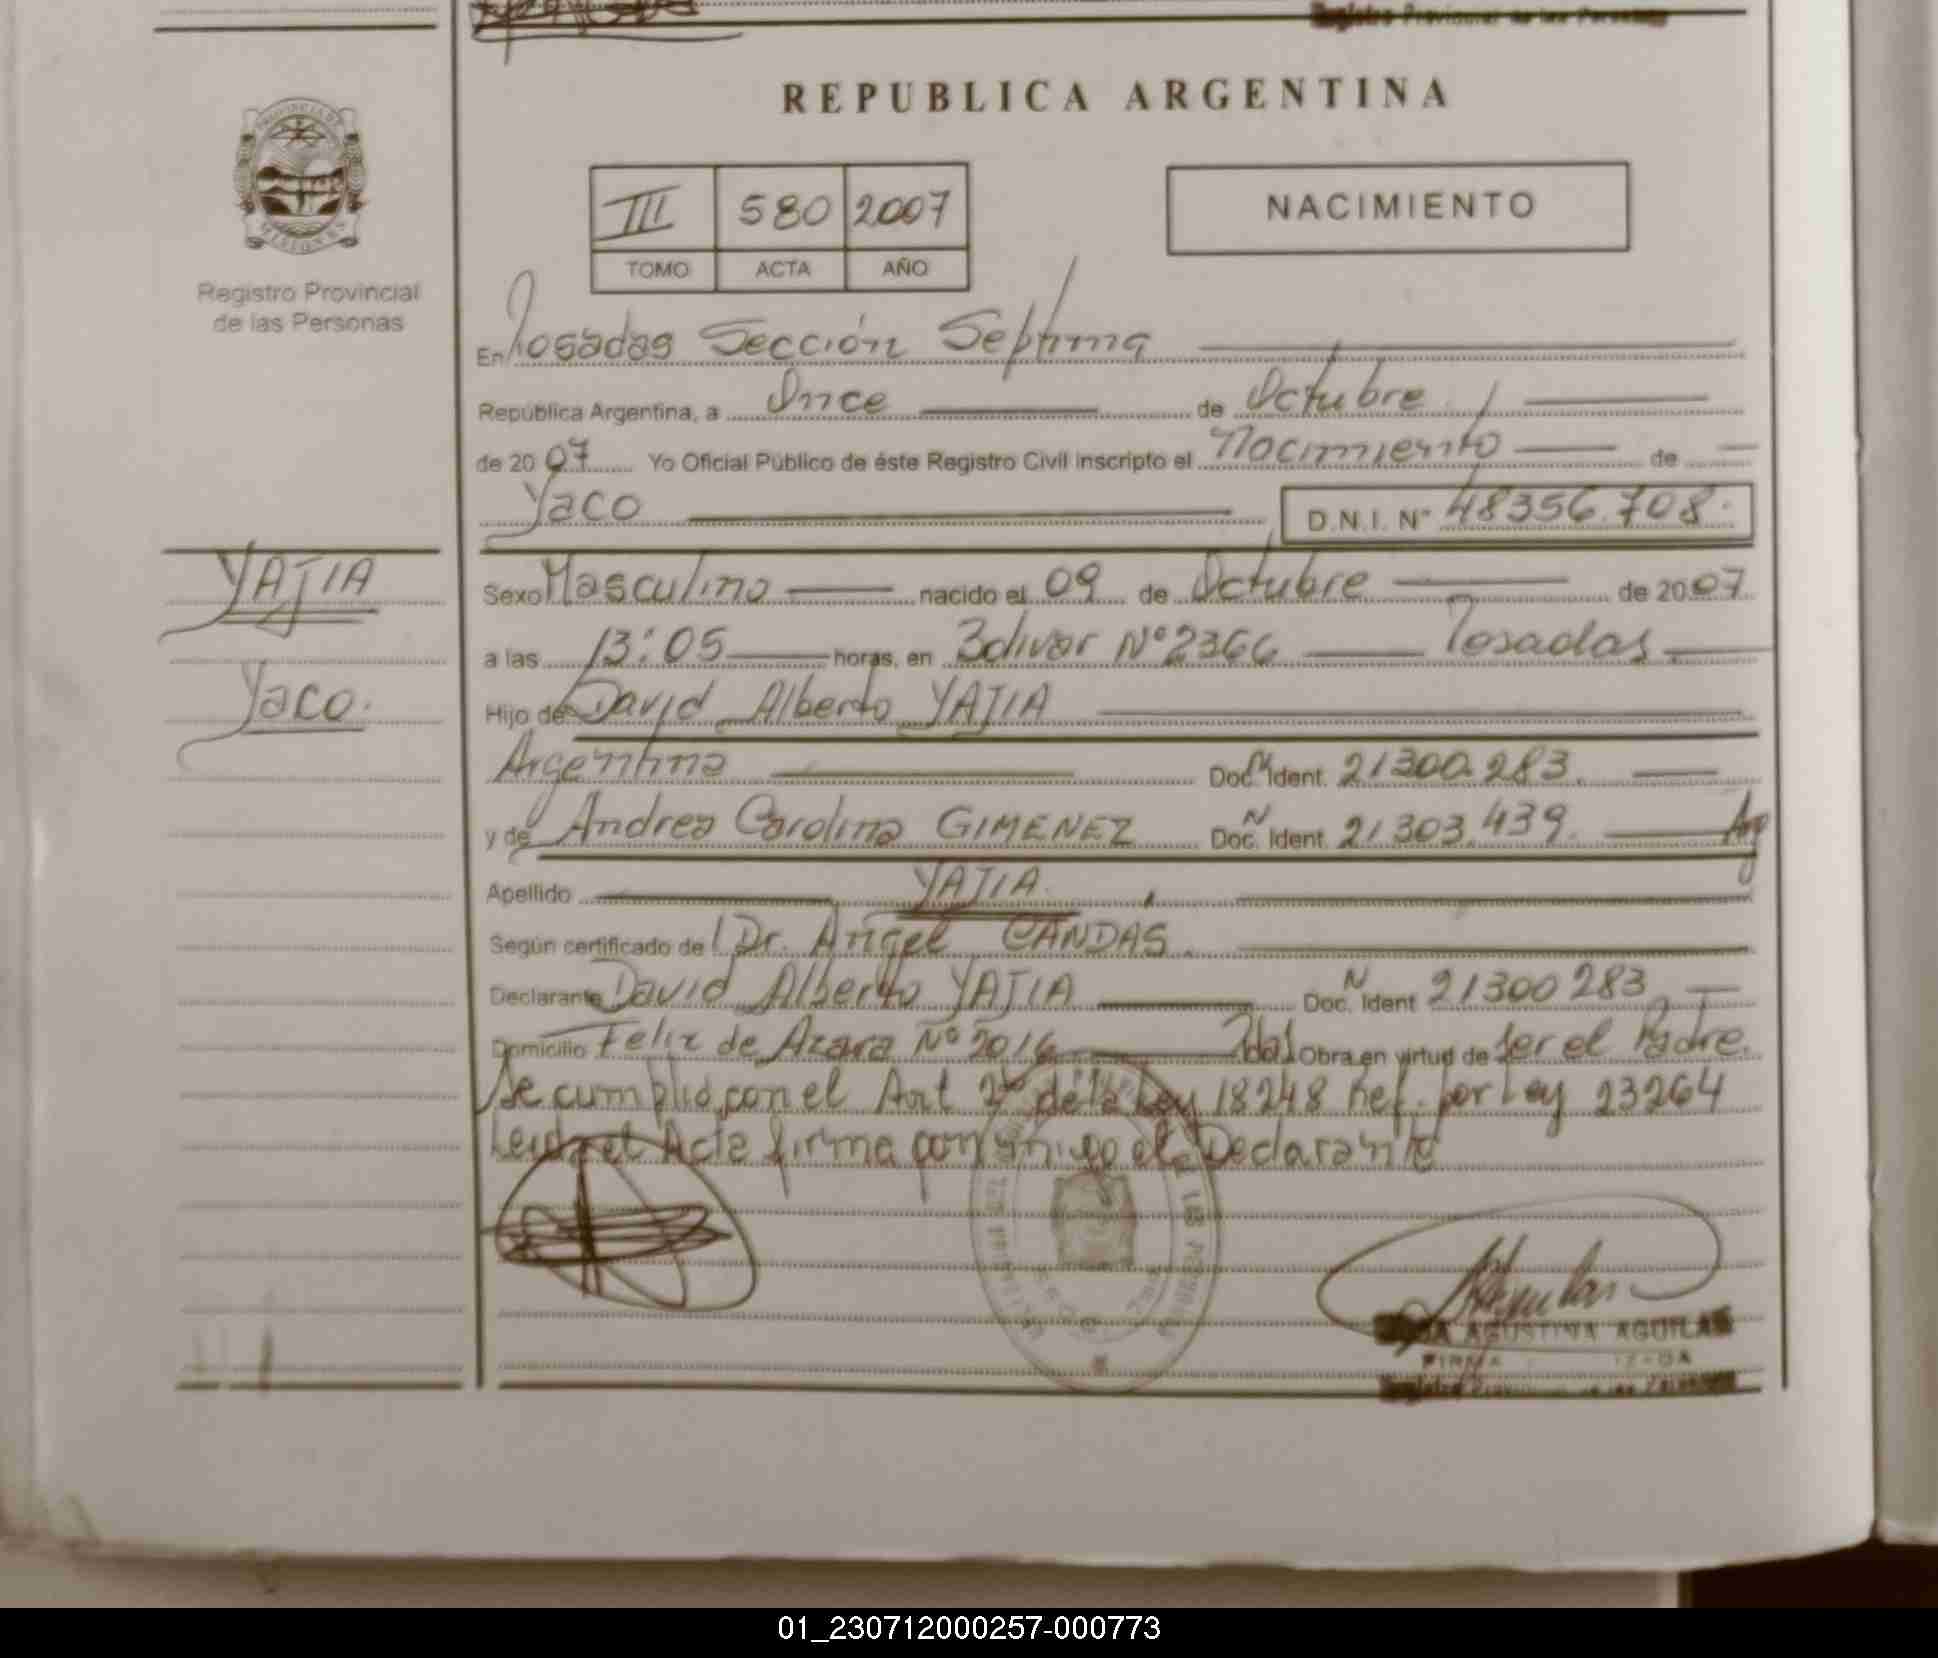 Registro Provincial de las Personas
REPUBLICA ARGENTINA
PROVINCIA DE
MISIONES
Registro Provincial
de las Personas
III 580 2007
TOMO ACTA AÑO
NACIMIENTO
En Posadas Sección Septima
República Argentina, a Once de Octubre
de 2007 Yo Oficial Público de éste Registro Civil inscripto el Nacimiento de
Yaco D.N.I. Nº 48356.708.
YAJIA
Yaco.
Sexo Masculino nacido el 09 de Octubre de 2007
a las 13:05 horas, en Bolivar Nº 2366 Posadas
Hijo de David Alberto YAJIA
Argentina Doc. Ident. 21300.283.
y de Andrea Carolina GIMENEZ Doc. Ident. 21303.439. Arg
Apellido YAJIA.
Según certificado de Dr. Angel CANDAS.
Declarante David Alberto YAJIA Doc. Ident 21300283
Domicilio Felix de Azara Nº 2016 Pdas Obra en virtud de ser el Padre.
Se cumplió con el Art 2º de la Ley 18248 Ref. por Ley 23264
Leida el Acta firma conmigo el Declarante
AGUSTINA AGUILAR
FIRMA
Registro Provincial de las Personas
01_230712000257-000773